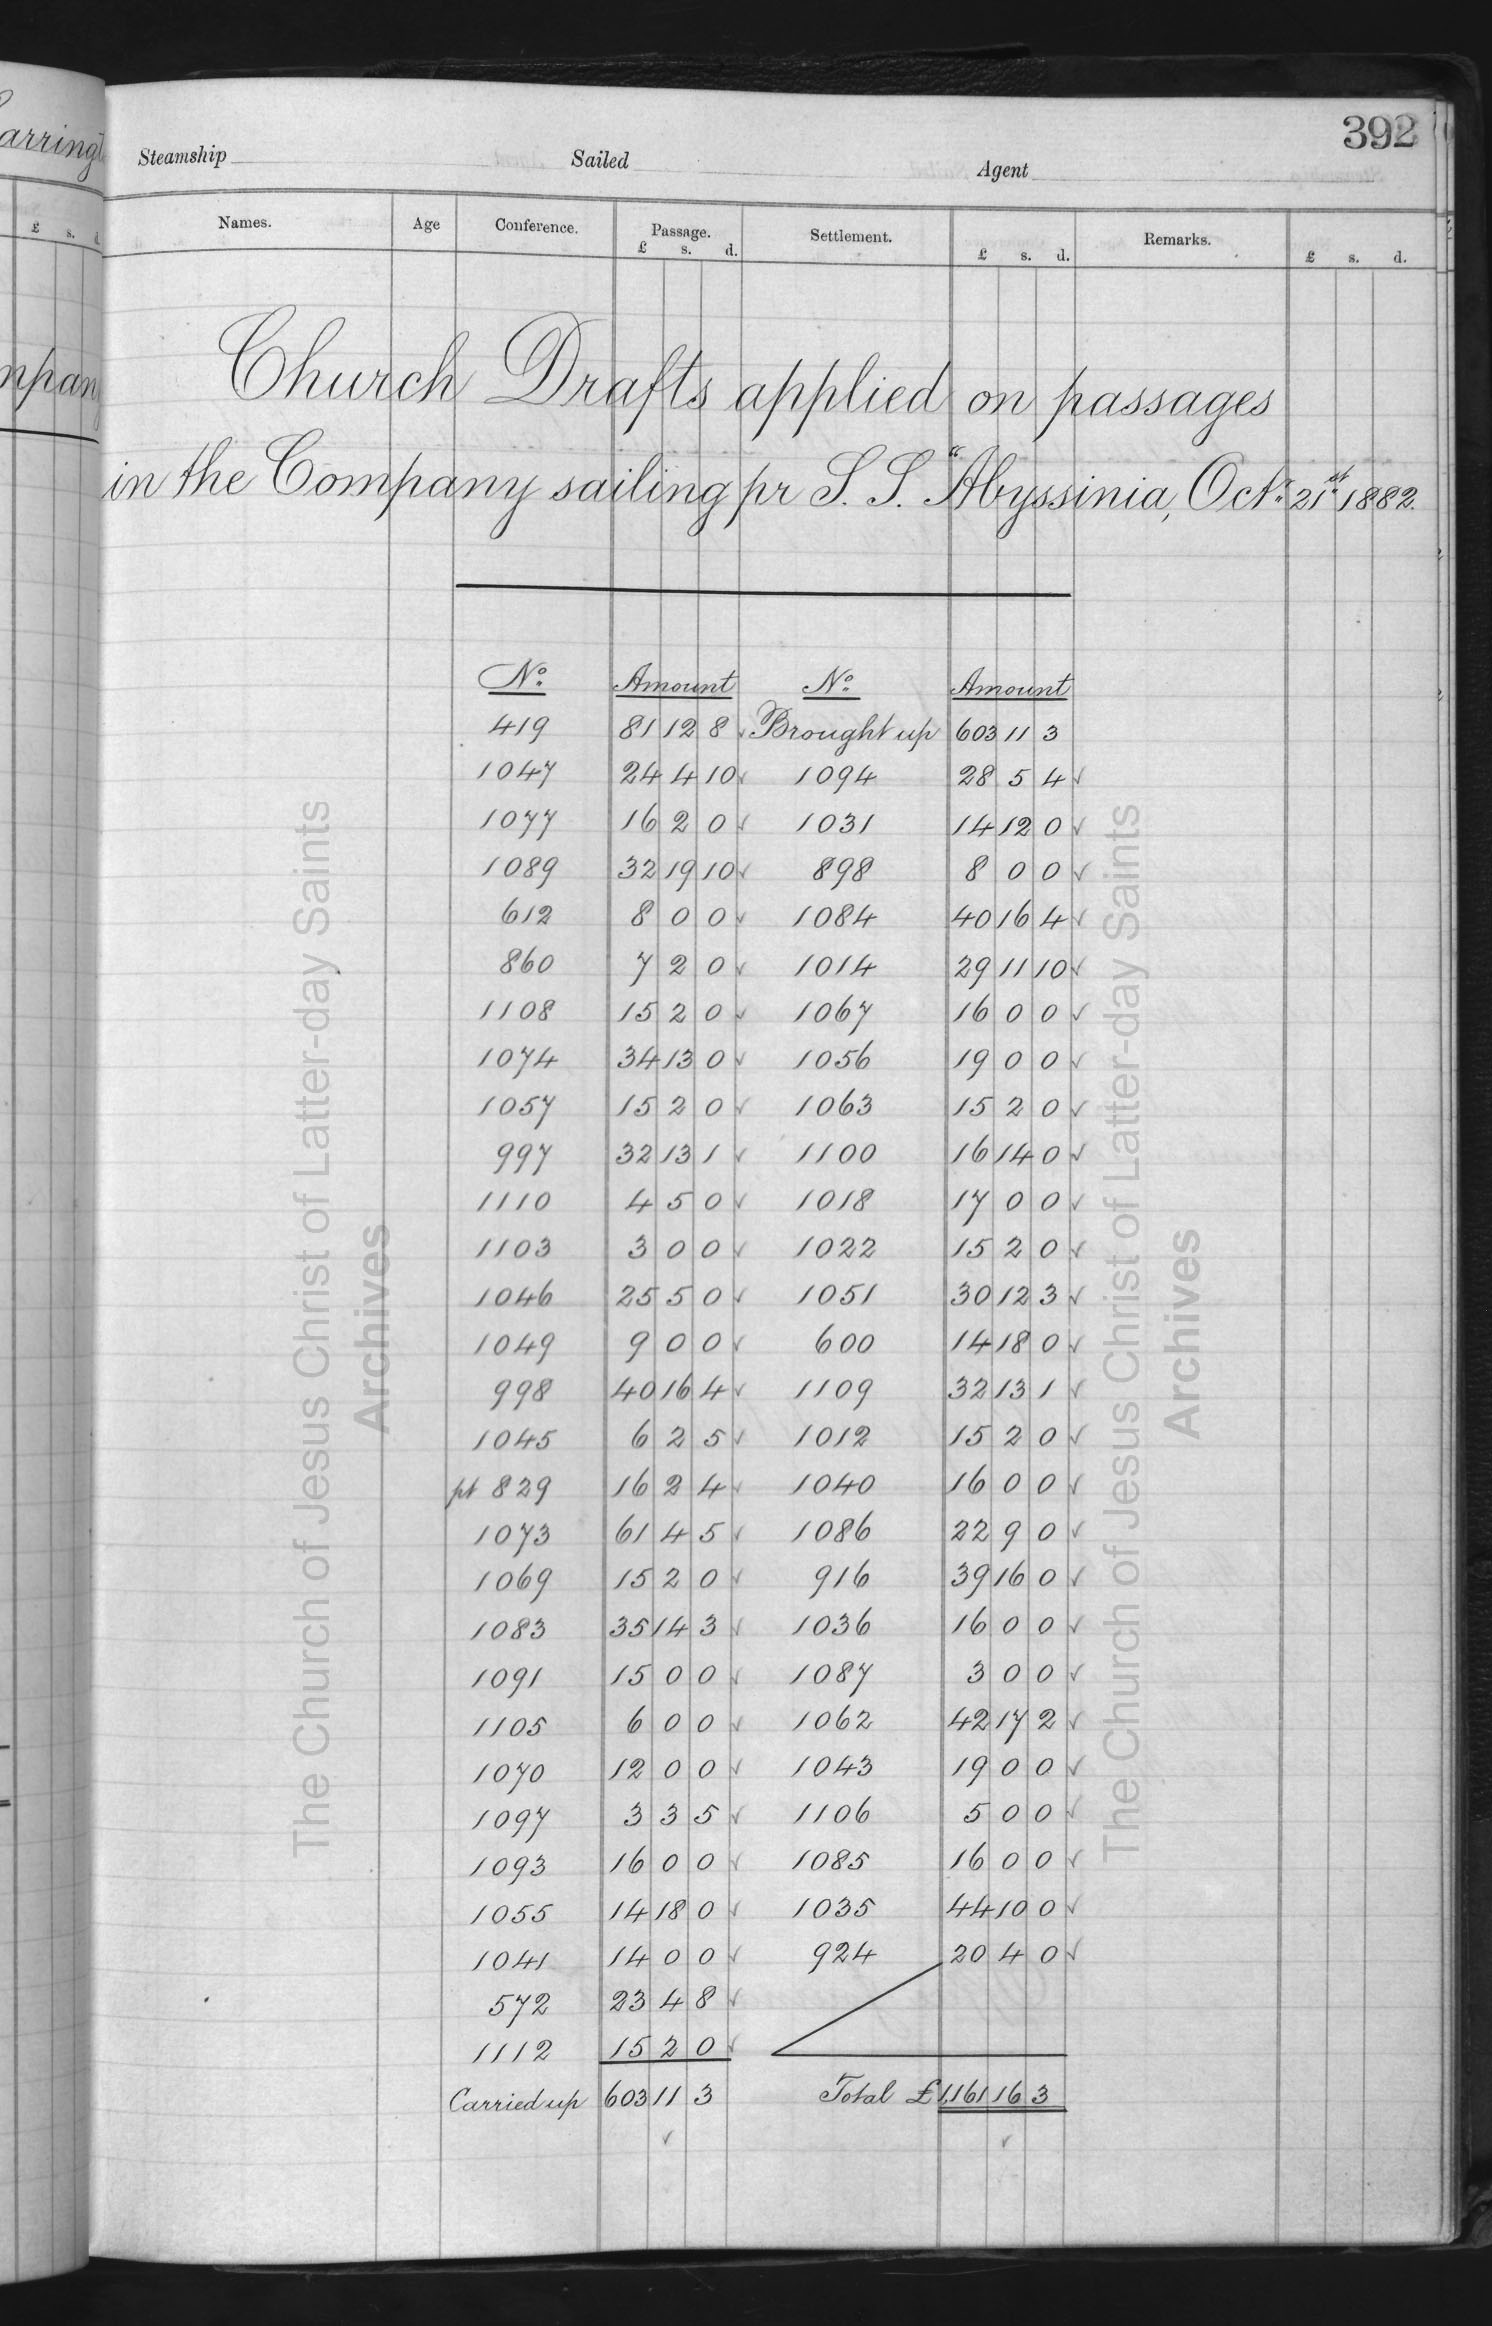 392
arringt
Steamship Sailed Agent
£ s. d
Names. Age Conference. Passage. £ s. d. Settlement. £ s. d. Remarks. £ s. d.
Church Drafts applied on passages
mpany
in the Company sailing pr S. S. "Abyssinia, Oct. 21st 1882.
No. Amount No. Amount
419 81 12 8 ✓ Brought up 603 11 3
1047 24 4 10 ✓ 1094 28 5 4 ✓
1077 16 2 0 ✓ 1031 14 12 0 ✓
1089 32 19 10 ✓ 898 8 0 0 ✓
612 8 0 0 ✓ 1084 40 16 4 ✓
860 7 2 0 ✓ 1014 29 11 10 ✓
1108 15 2 0 ✓ 1067 16 0 0 ✓
1074 34 13 0 ✓ 1056 19 0 0 ✓
1057 15 2 0 ✓ 1063 15 2 0 ✓
997 32 13 1 ✓ 1100 16 14 0 ✓
1110 4 5 0 ✓ 1018 17 0 0 ✓
1103 3 0 0 ✓ 1022 15 2 0 ✓
1046 25 5 0 ✓ 1051 30 12 3 ✓
1049 9 0 0 ✓ 600 14 18 0 ✓
998 40 16 4 ✓ 1109 32 13 1 ✓
1045 6 2 5 ✓ 1012 15 2 0 ✓
pt 829 16 2 4 ✓ 1040 16 0 0 ✓
1073 61 4 5 ✓ 1086 22 9 0 ✓
1069 15 2 0 ✓ 916 39 16 0 ✓
1083 35 14 3 ✓ 1036 16 0 0 ✓
1091 15 0 0 ✓ 1087 3 0 0 ✓
1105 6 0 0 ✓ 1062 42 17 2 ✓
1070 12 0 0 ✓ 1043 19 0 0 ✓
1097 3 3 5 ✓ 1106 5 0 0 ✓
1093 16 0 0 ✓ 1085 16 0 0 ✓
1055 14 18 0 ✓ 1035 44 10 0 ✓
1041 14 0 0 ✓ 924 20 4 0 ✓
572 23 4 8 ✓
1112 15 2 0 ✓
Carried up 603 11 3 Total £1,161 16 3
✓ ✓
The Church of Jesus Christ of Latter-day Saints
Archives
The Church of Jesus Christ of Latter-day Saints
Archives